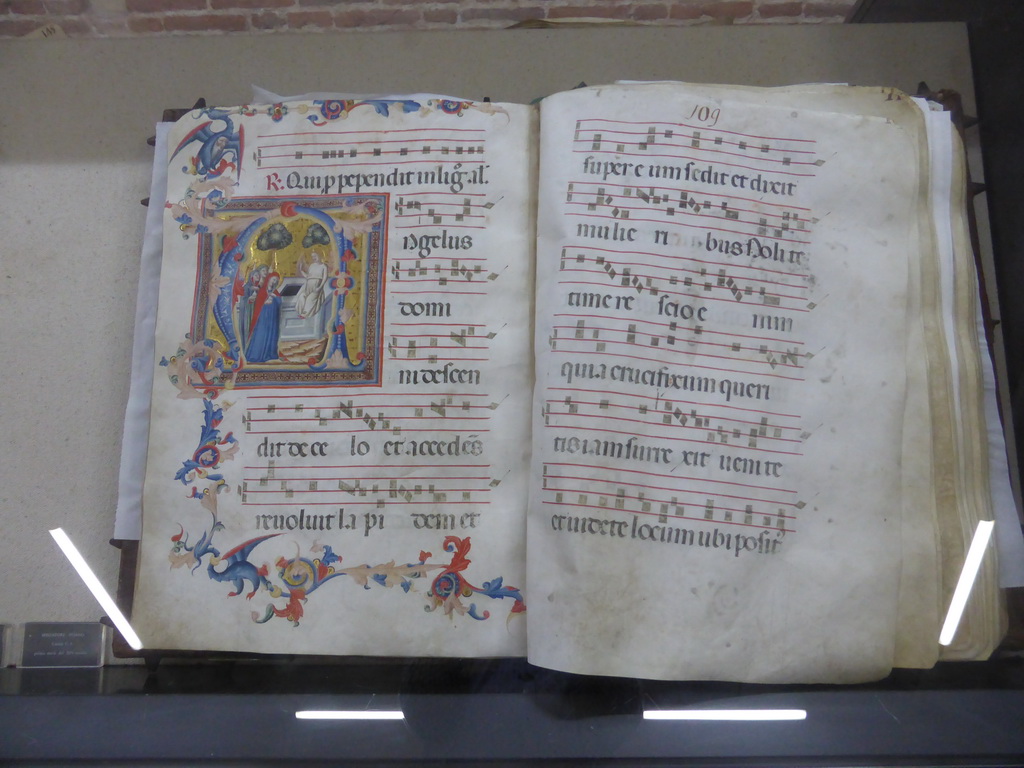 R. Qui p pependit in lig. al.
Angelus
domi
ni descen
dit de ce lo et accedēs
revoluit la pi dem et
109
super e um sedit et dixit
mulie ri bus Nolite
timere scio e nim
quia crucifixum queri
tis iam surre xit uenite
et uidete locum ubi posit